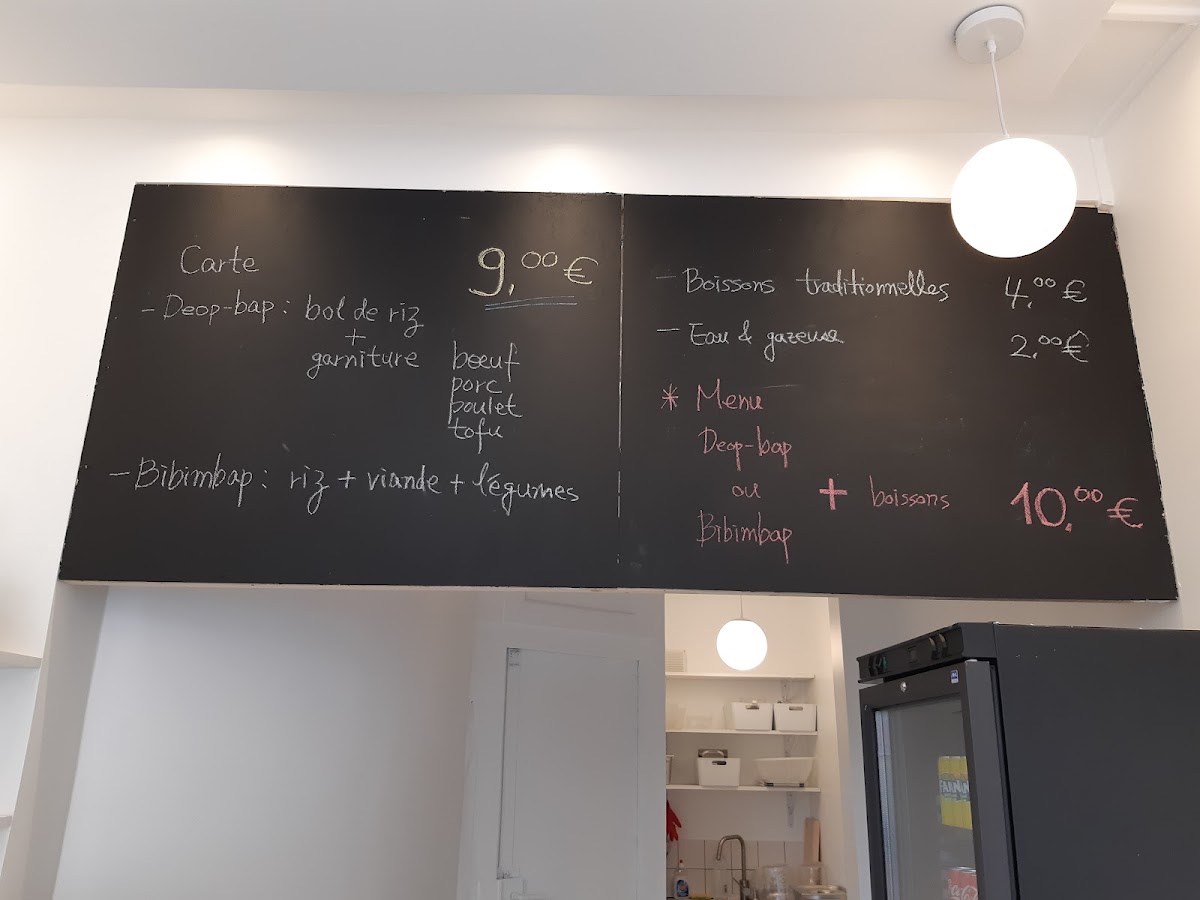 Carte 9,00 €
- Deop-bap : bol de riz
+
garniture boeuf
porc
poulet
tofu
- Bibimbap : riz + viande + légumes
- Boissons traditionnelles 4,00 €
- Eau & gazeuse 2,00 €
* Menu
Deop-bap
ou + boissons 10,00 €
Bibimbap